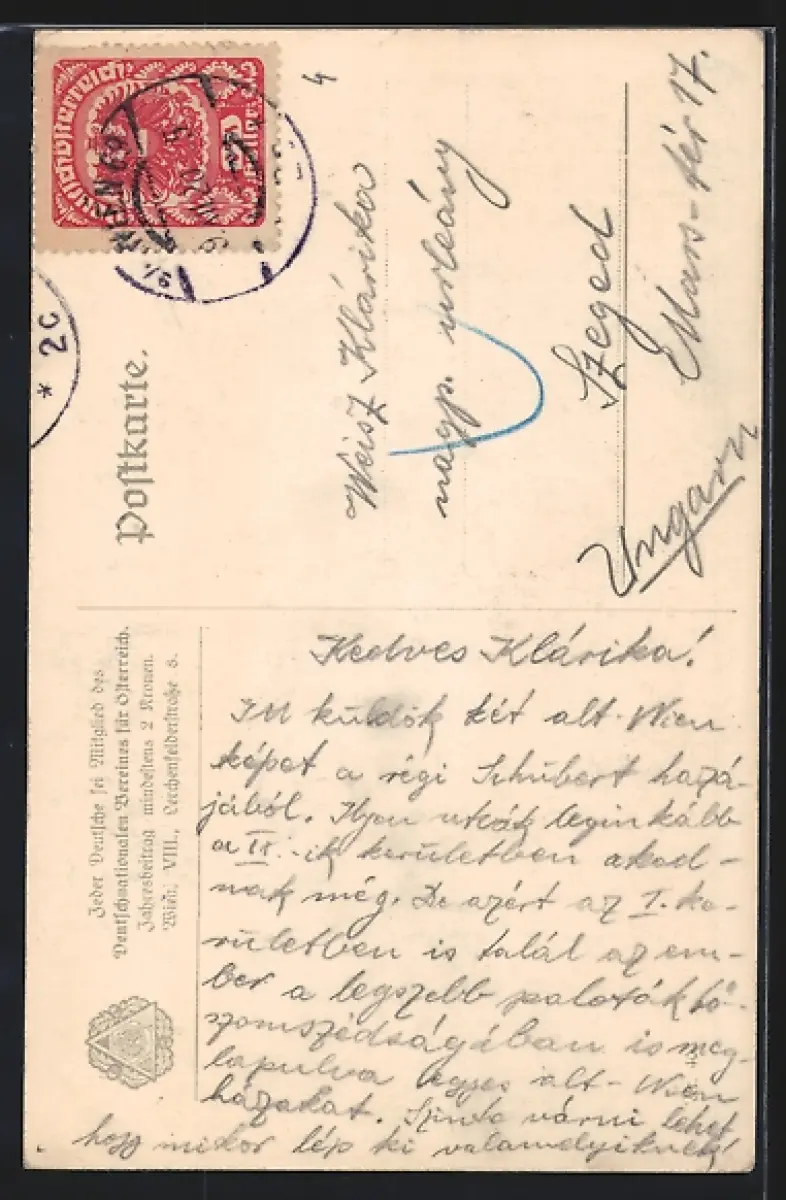 Deutschösterreich
WIEN 69
* 2c
4
Postkarte.
Weisz Klárika
nagys. urleány
Szeged
Mars-tér 17.
Ungarn
Jeder Deutsche sei Mitglied des
Deutschnationalen Vereines für Österreich.
Jahresbeitrag mindestens 2 Kronen.
Wien, VIII., Lerchenfelderstraße 8.
Kedves Klárika!
Itt küldök két alt-Wien
képet a régi Schubert hazá-
jából. Ilyen utcák leginkább
a II.-ik kerületben akad-
nak még. De azért az I. ke-
rületben is talál az em-
ber a legszebb paloták tő-
szomszédságában is meg-
lapulva egyes alt-Wien
házakat. Szinte várni lehet
hogy mikor lép ki valamelyiknek